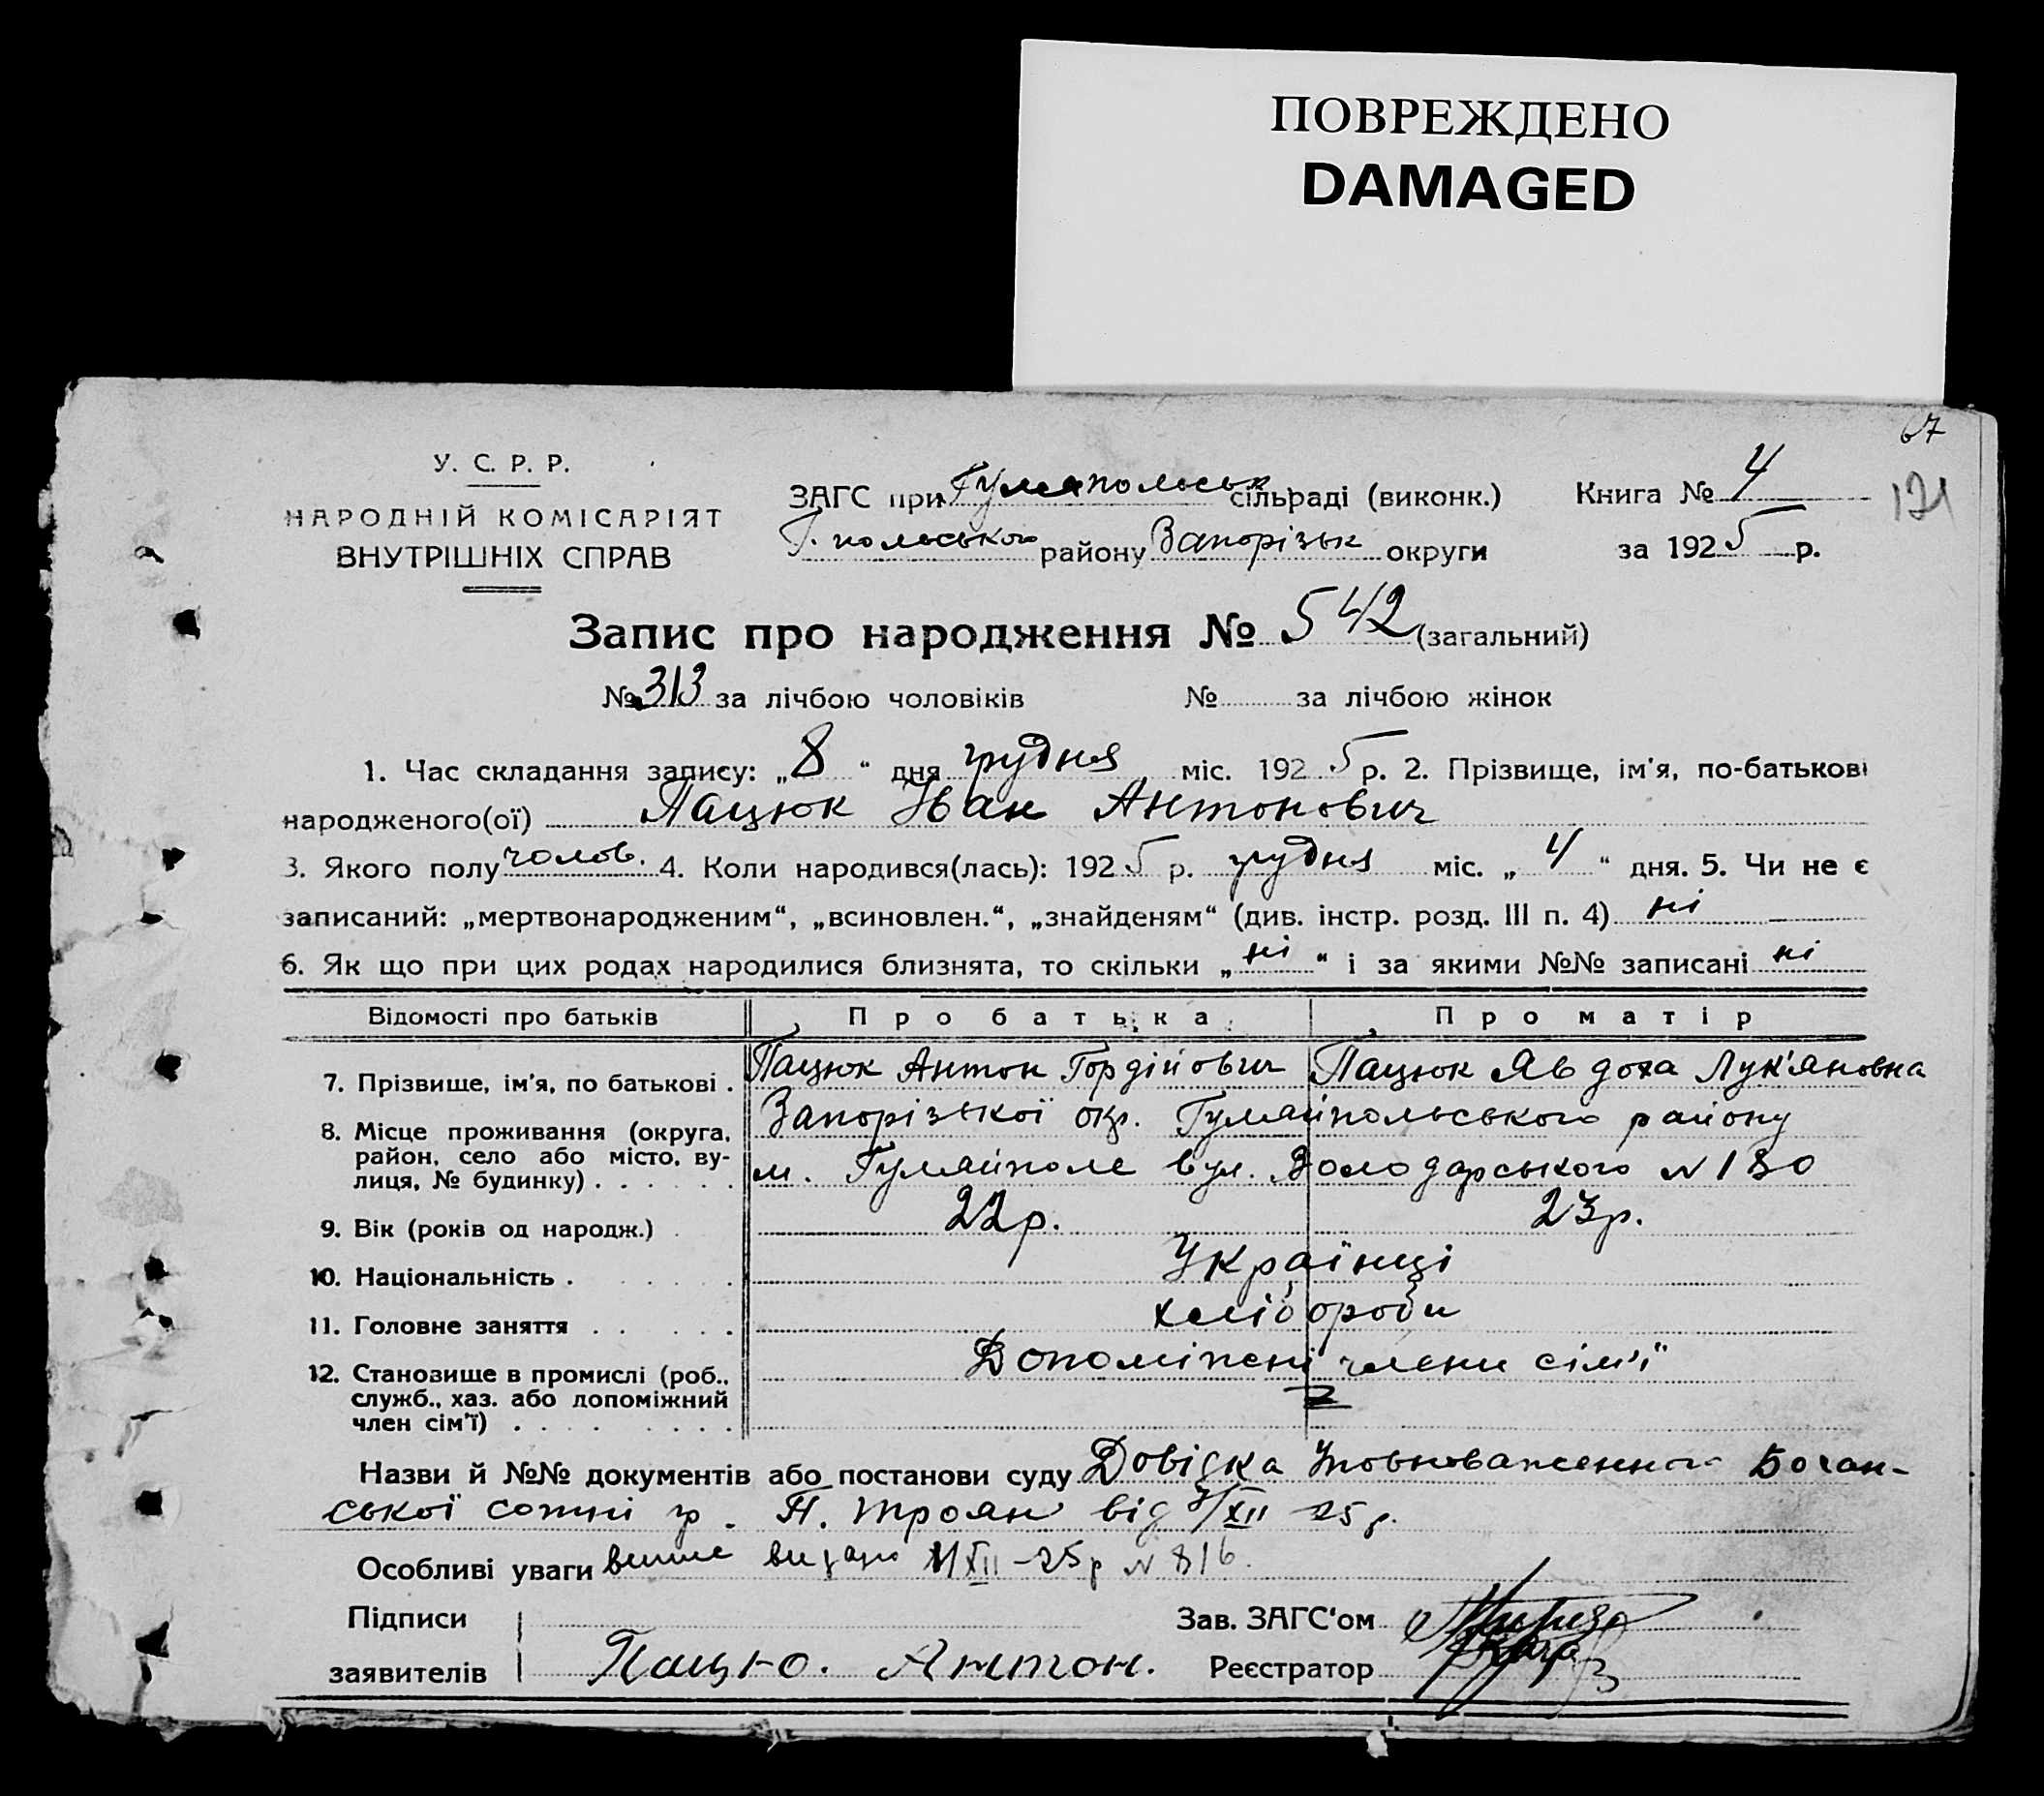 ПОВРЕЖДЕНО
DAMAGED
67
121
У. С. Р. Р.
НАРОДНІЙ КОМІСАРІЯТ
ВНУТРІШНІХ СПРАВ
ЗАГС при Гуляпольськ. сільраді (виконк.)
Г. польського району Запорізьк округи
Книга № 4
за 1925 р.
Запис про народження № 542 (загальний)
№ 313 за лічбою чоловіків № за лічбою жінок
1. Час складання запису: „8“ дня грудня міс. 1925 р. 2. Прізвище, ім'я, по-батькові
народженого(ої) Пацюк Іван Антонович
3. Якого полу чолов. 4. Коли народився(лась): 1925 р. грудня міс. „4“ дня. 5. Чи не є
записаний: „мертвонародженим“, „всиновлен.“, „знайденям“ (див. інстр. розд. III п. 4) ні
6. Як що при цих родах народилися близнята, то скільки „ні“ і за якими №№ записані ні
Відомості про батьків Про батька Про матір
7. Прізвище, ім'я, по батькові . Пацюк Антон Гордійович Пацюк Явдоха Лук'яновна
8. Місце проживання (округа, район, село або місто, вулиця, № будинку) . . . . . .
Запорізької окр. Гуляйпольського району
м. Гуляйполе вул. Володарського №180
9. Вік (років од народж.) 22р. 23р.
10. Національність . Українці
11. Головне заняття . . . . . хлібороби
12. Становище в промислі (роб., служб., хаз. або допоміжний член сім'ї) . . . . . . .
Допоміжні члени сім'ї
Назви й №№ документів або постанови суду Довідка Уповноваженного Бочан-
ської сотні гр. П. Троян від 7/XII 25р.
Особливі уваги видано XII-25р №816.
Підписи
заявителів Пацюк Антон.
Зав. ЗАГС'ом
Реєстратор